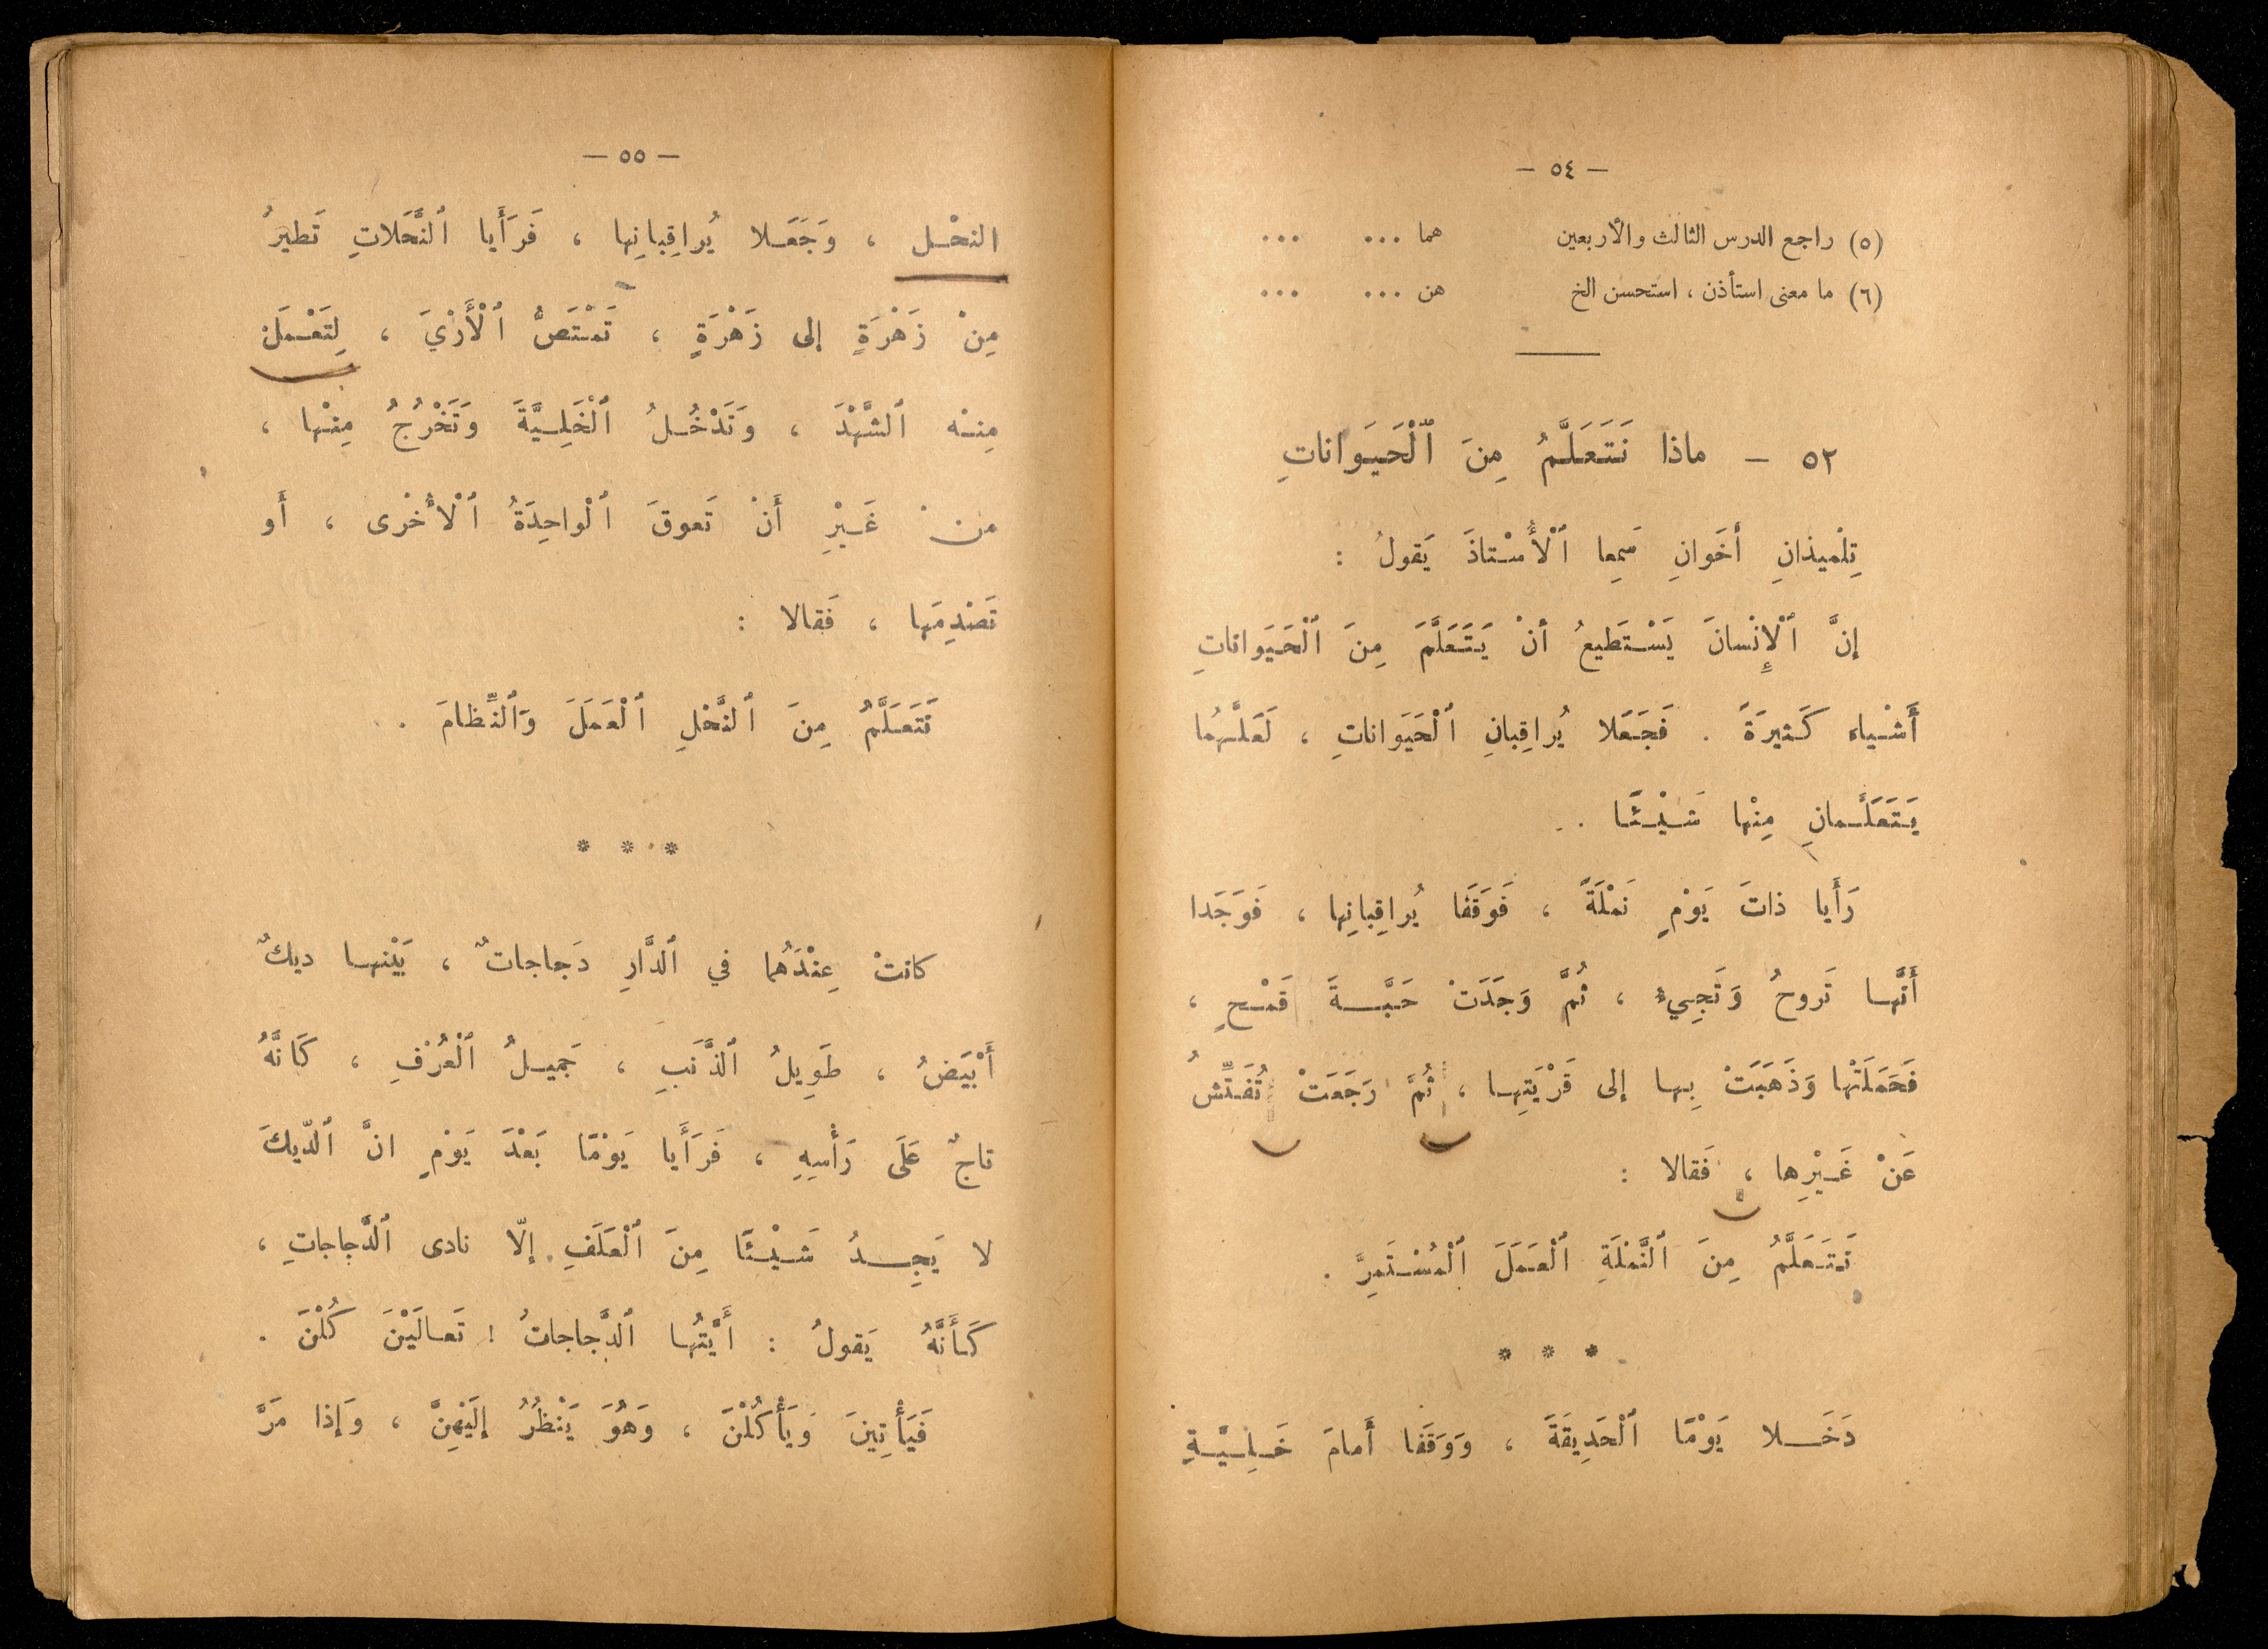 — ٥٤ —
(٥) راجع الدرس الثالث والأربعين هما ... ...
(٦) ما معنى استأذن ، استحسن الخ هن ... ...
٥٢ — ماذا نَتَعَلَّمُ مِنَ ٱلْحَيَوانَاتِ
تِلْميذانِ أَخَوانِ سَمِعا ٱلْأُسْتاذَ يَقولُ :
إنَّ ٱلْإِنْسانَ يَسْتَطيعُ أنْ يَتَعَلَّمَ مِنَ ٱلْحَيَواناتِ
أَشْياء كَثيرَةً . فَجَعَلا يُراقِبانِ ٱلْحَيَواناتِ ، لَعَلَّهُما
يَتَعَلَّمانِ مِنْها شَيْئًا .
رَأَيا ذاتَ يَوْمٍ نَمْلَةً ، فَوَقَفا يُراقِبانِها ، فَوَجَدا
أَنَّها تَروحُ وَتَجِيءُ ، ثُمَّ وَجَدَتْ حَبَّةَ قَمْحٍ ،
فَحَمَلَتْها وَذَهَبَتْ بِها إلى قَرْيَتِها ، ثُمَّ رَجَعَتْ تُفَتِّشُ
عَنْ غَيْرِها ، فَقالا :
نَتَعَلَّمُ مِنَ ٱلنَّمْلَةِ ٱلْعَمَلَ ٱلْمُسْتَمِرَّ .
* * *
دَخَلا يَوْمًا ٱلْحَدِيقَةَ ، وَوَقَفا أَمامَ خَلِيَّةِ
— ٥٥ —
النحْل ، وَجَعَلا يُراقِبانِها ، فَرَأَيا ٱلنَّحَلاتِ تَطيرُ
مِنْ زَهْرَةٍ إلى زَهْرَةٍ ، تَمْتَصُّ ٱلْأَرْيَ ، لِتَعْمَلَ
مِنْه ٱلشَّهْدَ ، وَتَدْخُلُ ٱلْخَلِيَّةَ وَتَخْرُجُ مِنْها ،
من غَيْرِ أَنْ تَعوقَ ٱلْواحِدَةُ ٱلْأُخْرى ، أَو
تَصْدِمَها ، فَقالا :
نَتَعَلَّمُ مِنَ ٱلنَّحْلِ ٱلْعَمَلَ وَٱلنِّظامَ .
* * *
كانتْ عِنْدَهُما في ٱلدَّارِ دَجاجاتٌ ، بَيْنها ديكٌ
أَبْيَضُ ، طَوِيلُ ٱلذَّنَبِ ، جَميلُ ٱلْعُرْفِ ، كَانَّهُ
تاجٌ عَلَى رَأْسِهِ ، فَرَأَيا يَوْمًا بَعْدَ يَوْمٍ انَّ ٱلدّيكَ
لا يَجِدُ شَيْئًا مِنَ ٱلْعَلَفِ إلّا نادى ٱلدَّجاجاتِ ،
كَأَنَّهُ يَقولُ : أَيَّتُها ٱلدَّجاجاتُ ! تَعالَيْنَ كُلْنَ .
فَيَأْتِينَ وَيَأْكُلْنَ ، وَهُوَ يَنْظُرُ إلَيْهِنَّ ، وَإذا مَرَّ